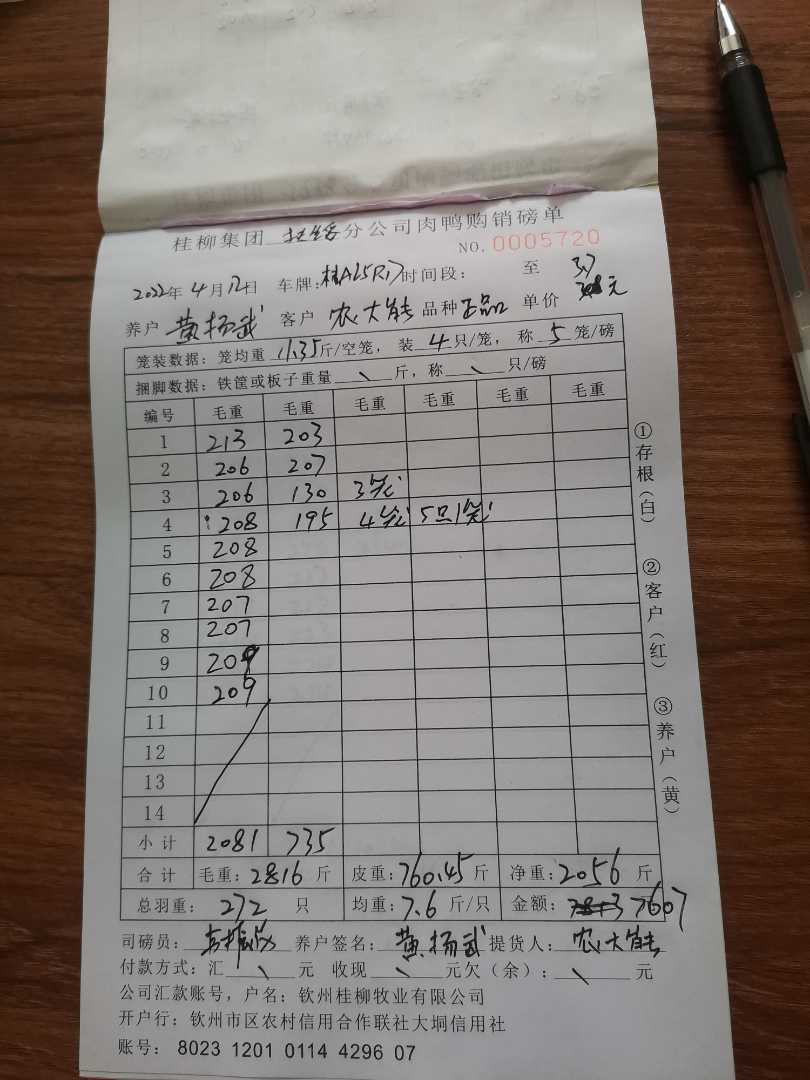 桂柳集团 分公司肉鸭购销磅单
NO. 0005720
2022年 4月12日 车牌:桂A25R17 时间段: 至 3.7
养户 黄扬武 客户 农大能 品种 正品 单价 元
笼装数据:笼均重 11.35斤/空笼,装 4 只/笼,称 5 笼/磅
捆脚数据:铁筐或板子重量 \ 斤,称 \ 只/磅
编号 毛重 毛重 毛重 毛重 毛重 毛重
1 213 203
2 206 207
3 206 130 3笼
4 208 195 4笼 5只1笼
5 208
6 208
7 207
8 207
9 209
10 209
11
12
13
14
小计 2081 735
合计 毛重:2816 斤 皮重:760.45斤 净重:2056 斤
总羽重: 272 只 均重:7.6 斤/只 金额: 7607
司磅员: 养户签名: 黄扬武 提货人: 农大能
付款方式:汇 \ 元 收现 \ 元欠(余): \ 元
公司汇款账号,户名:钦州桂柳牧业有限公司
开户行:钦州市区农村信用合作联社大垌信用社
账号: 8023 1201 0114 4296 07
①存根(白)
②客户(红)
③养户(黄)